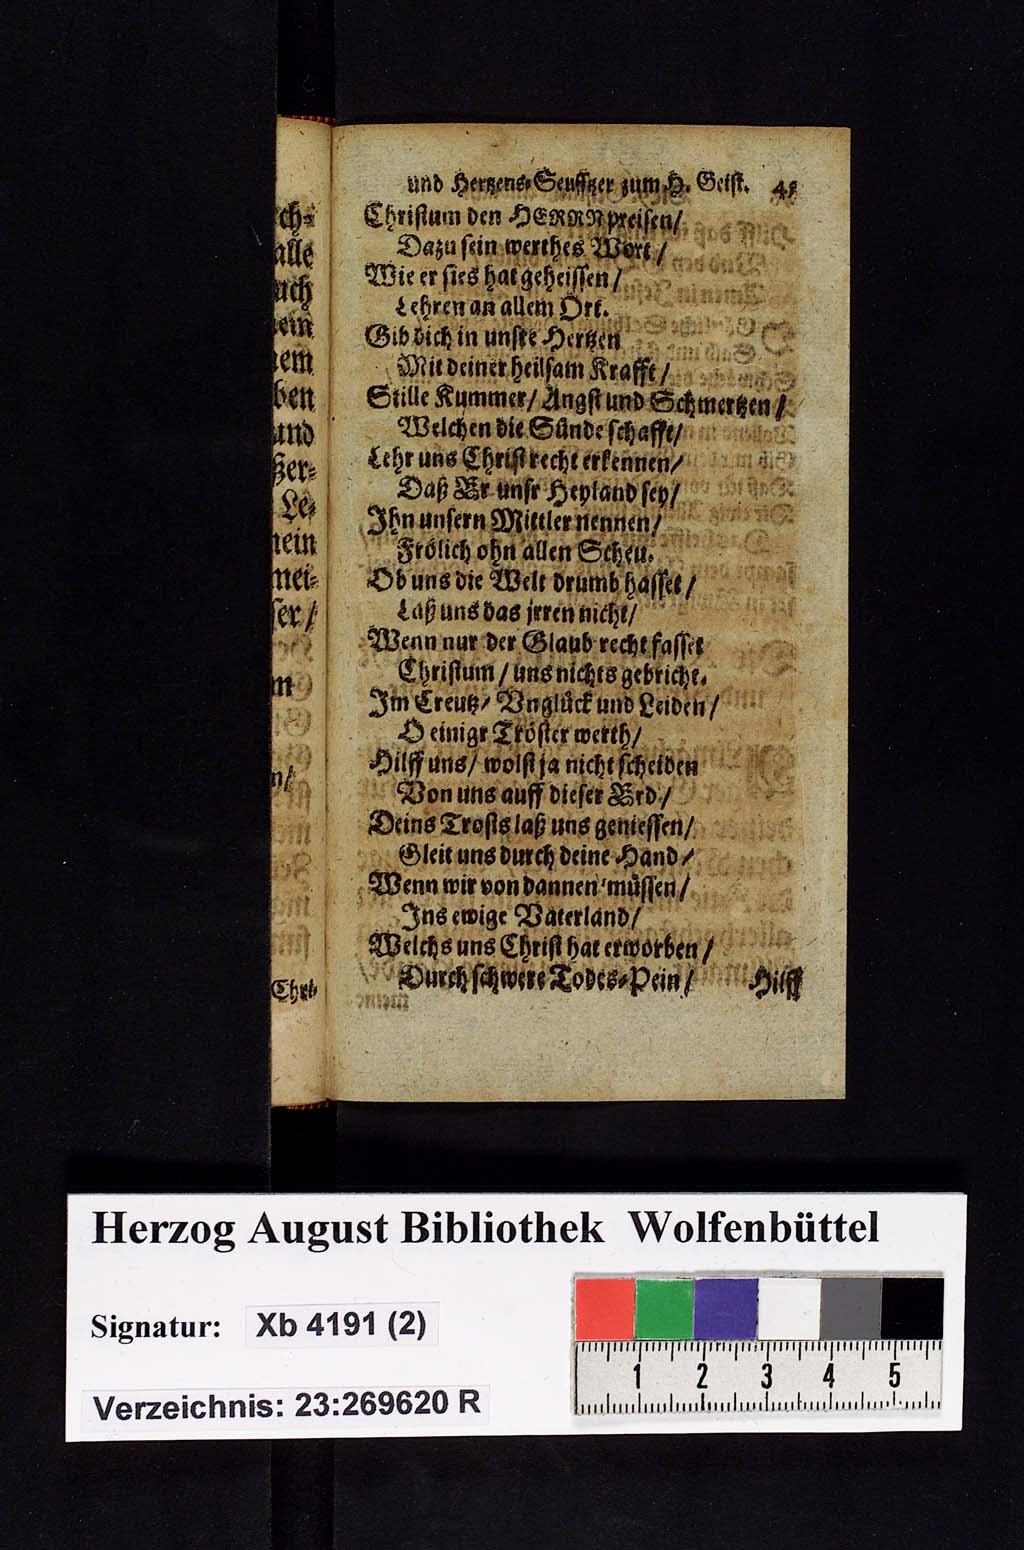 ch-
alle
uch
ein
nem
ben
und
ßer-
Le-
nein
mei-
ser /
m
n/
Chri-
und Hertzens-Seufftzer zum H. Geist. 45
Christum den HERRN preisen/
Dazu sein werthes Wort /
Wie er sies hat geheissen /
Lehren an allem Ort.
Gib dich in unsre Hertzen
Mit deiner heilsam Krafft /
Stille Kummer / Angst und Schmertzen /
Welchen die Sünde schafft/
Lehr uns Christ recht erkennen/
Daß Er unsr Heyland sey/
Ihn unsern Mittler nennen/
Frölich ohn allen Scheu.
Ob uns die Welt drumb hasset /
Laß uns das jrren nicht/
Wenn nur der Glaub recht fasset
Christum / uns nichts gebricht.
Im Creutz/ Vnglück und Leiden /
O einigr Tröster werth/
Hilff uns/ wolst ja nicht scheiden
Von uns auff dieser Erd /
Deins Trosts laß uns geniessen/
Gleit uns durch deine Hand/
Wenn wir von dannen müssen /
Ins ewige Vaterland/
Welchs uns Christ hat erworben /
Durch schwere Todes-Pein / Hilff
Herzog August Bibliothek Wolfenbüttel
Signatur: Xb 4191 (2)
Verzeichnis: 23:269620 R
1 2 3 4 5